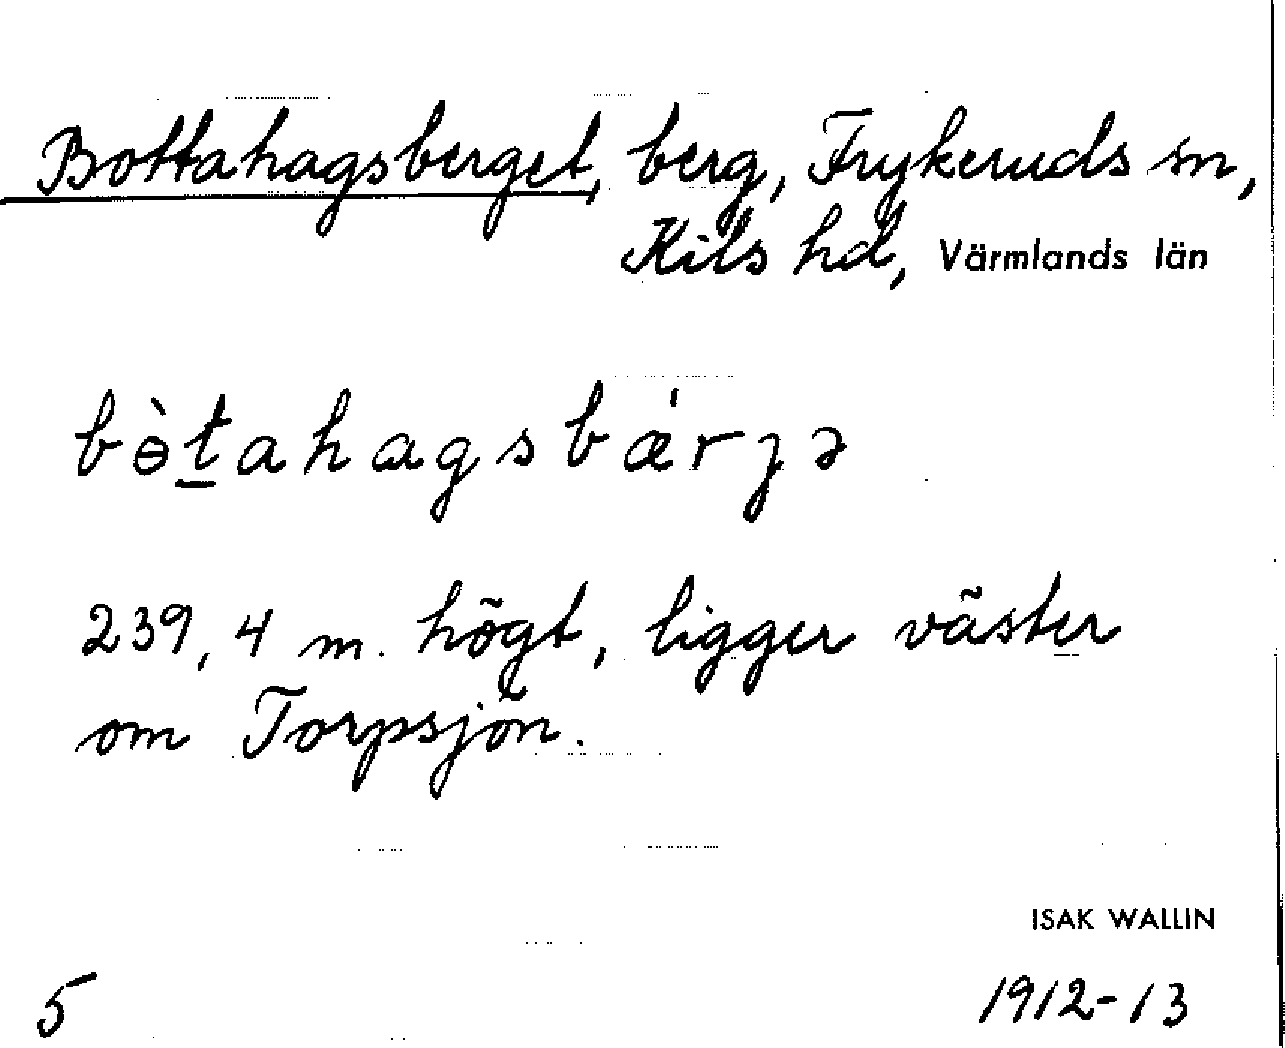 Bottahagsberget, berg, Frykeruds sn,
Kils hd, Värmlands län
bɵ̀t̲ahagsbǽrȷə
239,4 m. högt, ligger väster
om Torpsjön.
ISAK WALLIN
5 1912-13